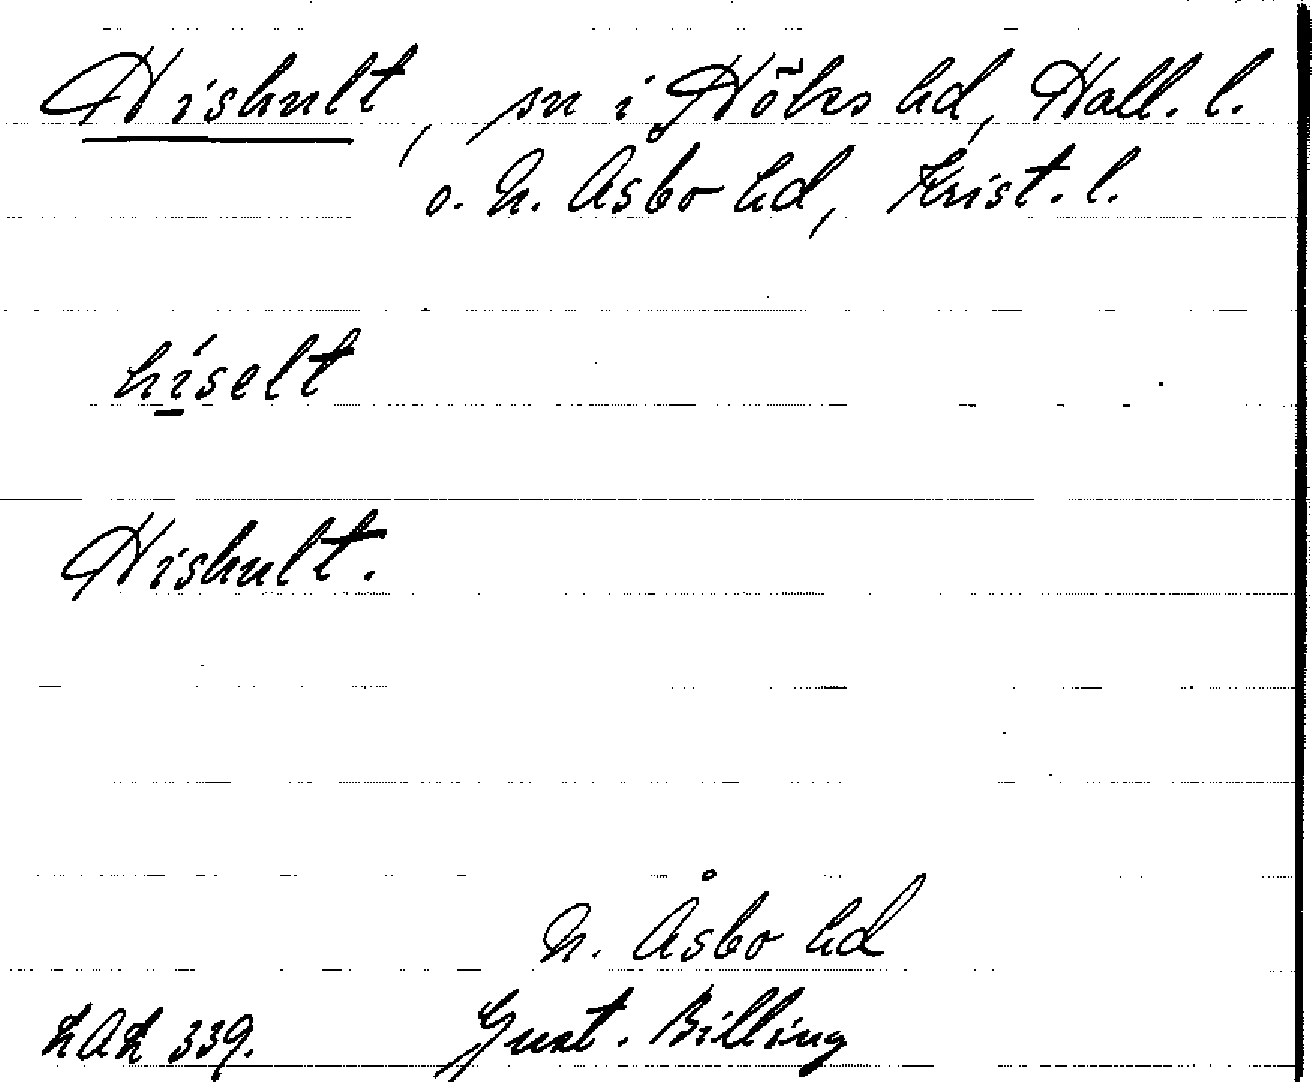 Hishult, sn i Höks hd, Hall. l.
o. N. Åsbo hd, Krist. l.
híselt
Hishult.
N. Åsbo hd
LAL 339. Gust. Billing